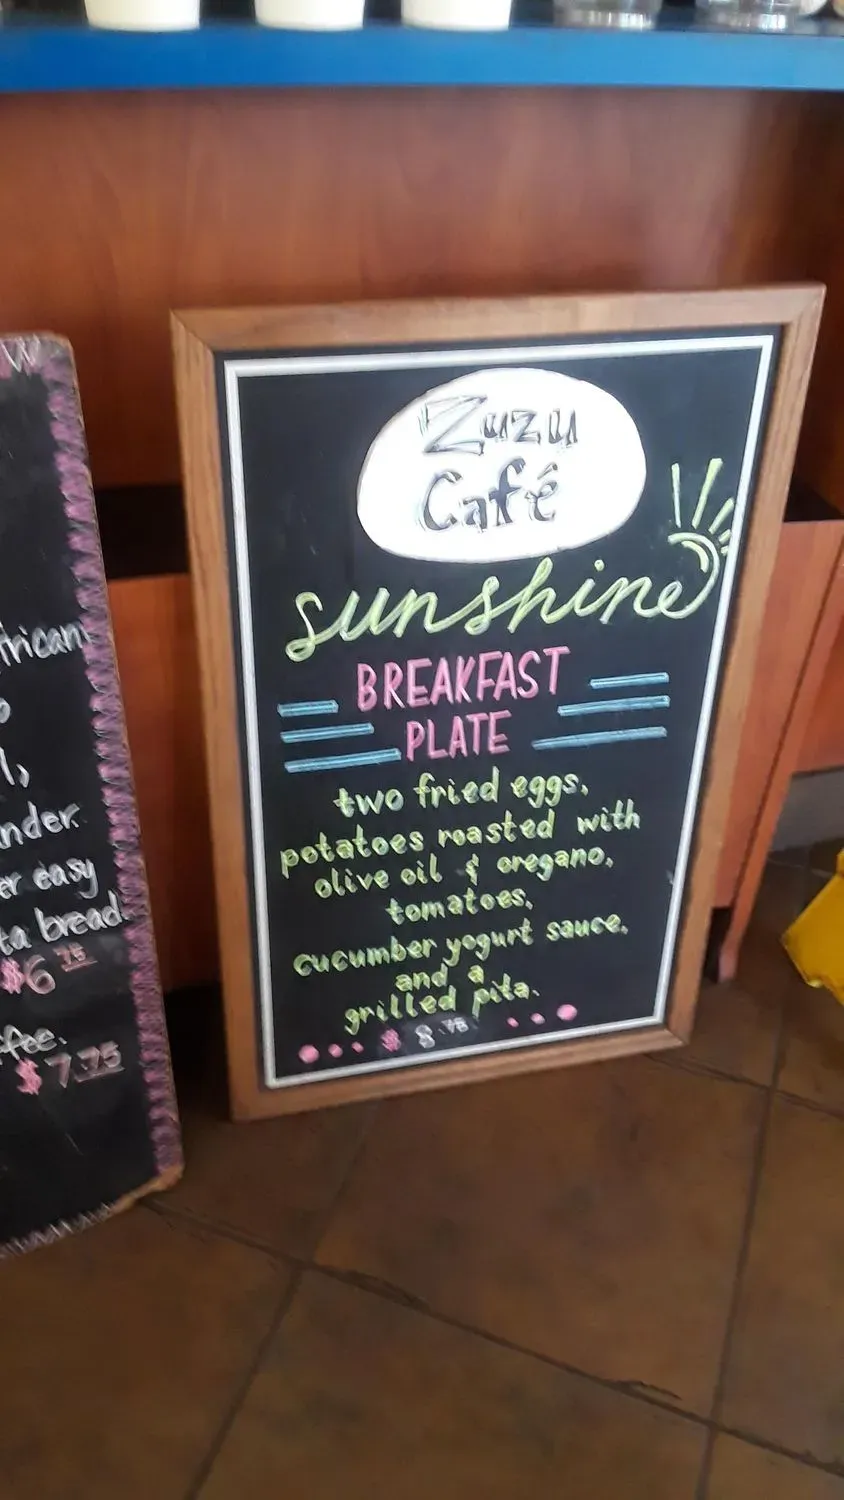 frican
nder.
er easy
ta bread.
$6 75
fee.
$7.75
Zuzu
Café
sunshine
BREAKFAST
PLATE
two fried eggs,
potatoes roasted with
olive oil & oregano,
tomatoes,
cucumber yogurt sauce,
and a
grilled pita.
$8.75